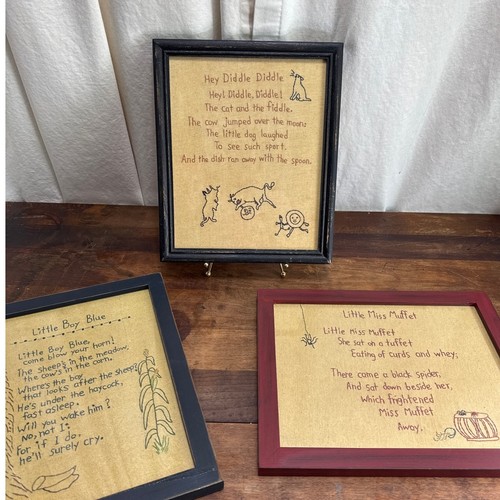 Hey Diddle Diddle
Hey! Diddle, Diddle!
The cat and the fiddle.
The cow jumped over the moon;
The little dog laughed
To see such sport.
And the dish ran away with the spoon.
Little Boy Blue
Little Boy Blue,
come blow your horn!
The sheep's in the meadow,
the cow's in the corn.
Where's the boy
that looks after the sheep?
He's under the haycock,
fast asleep.
Will you wake him?
No, not I:
For if I do,
he'll surely cry.
Little Miss Muffet
Little Miss Muffet
She sat on a tuffet
Eating of curds and whey;
There came a black spider,
And sat down beside her,
Which frightened
Miss Muffet
Away.